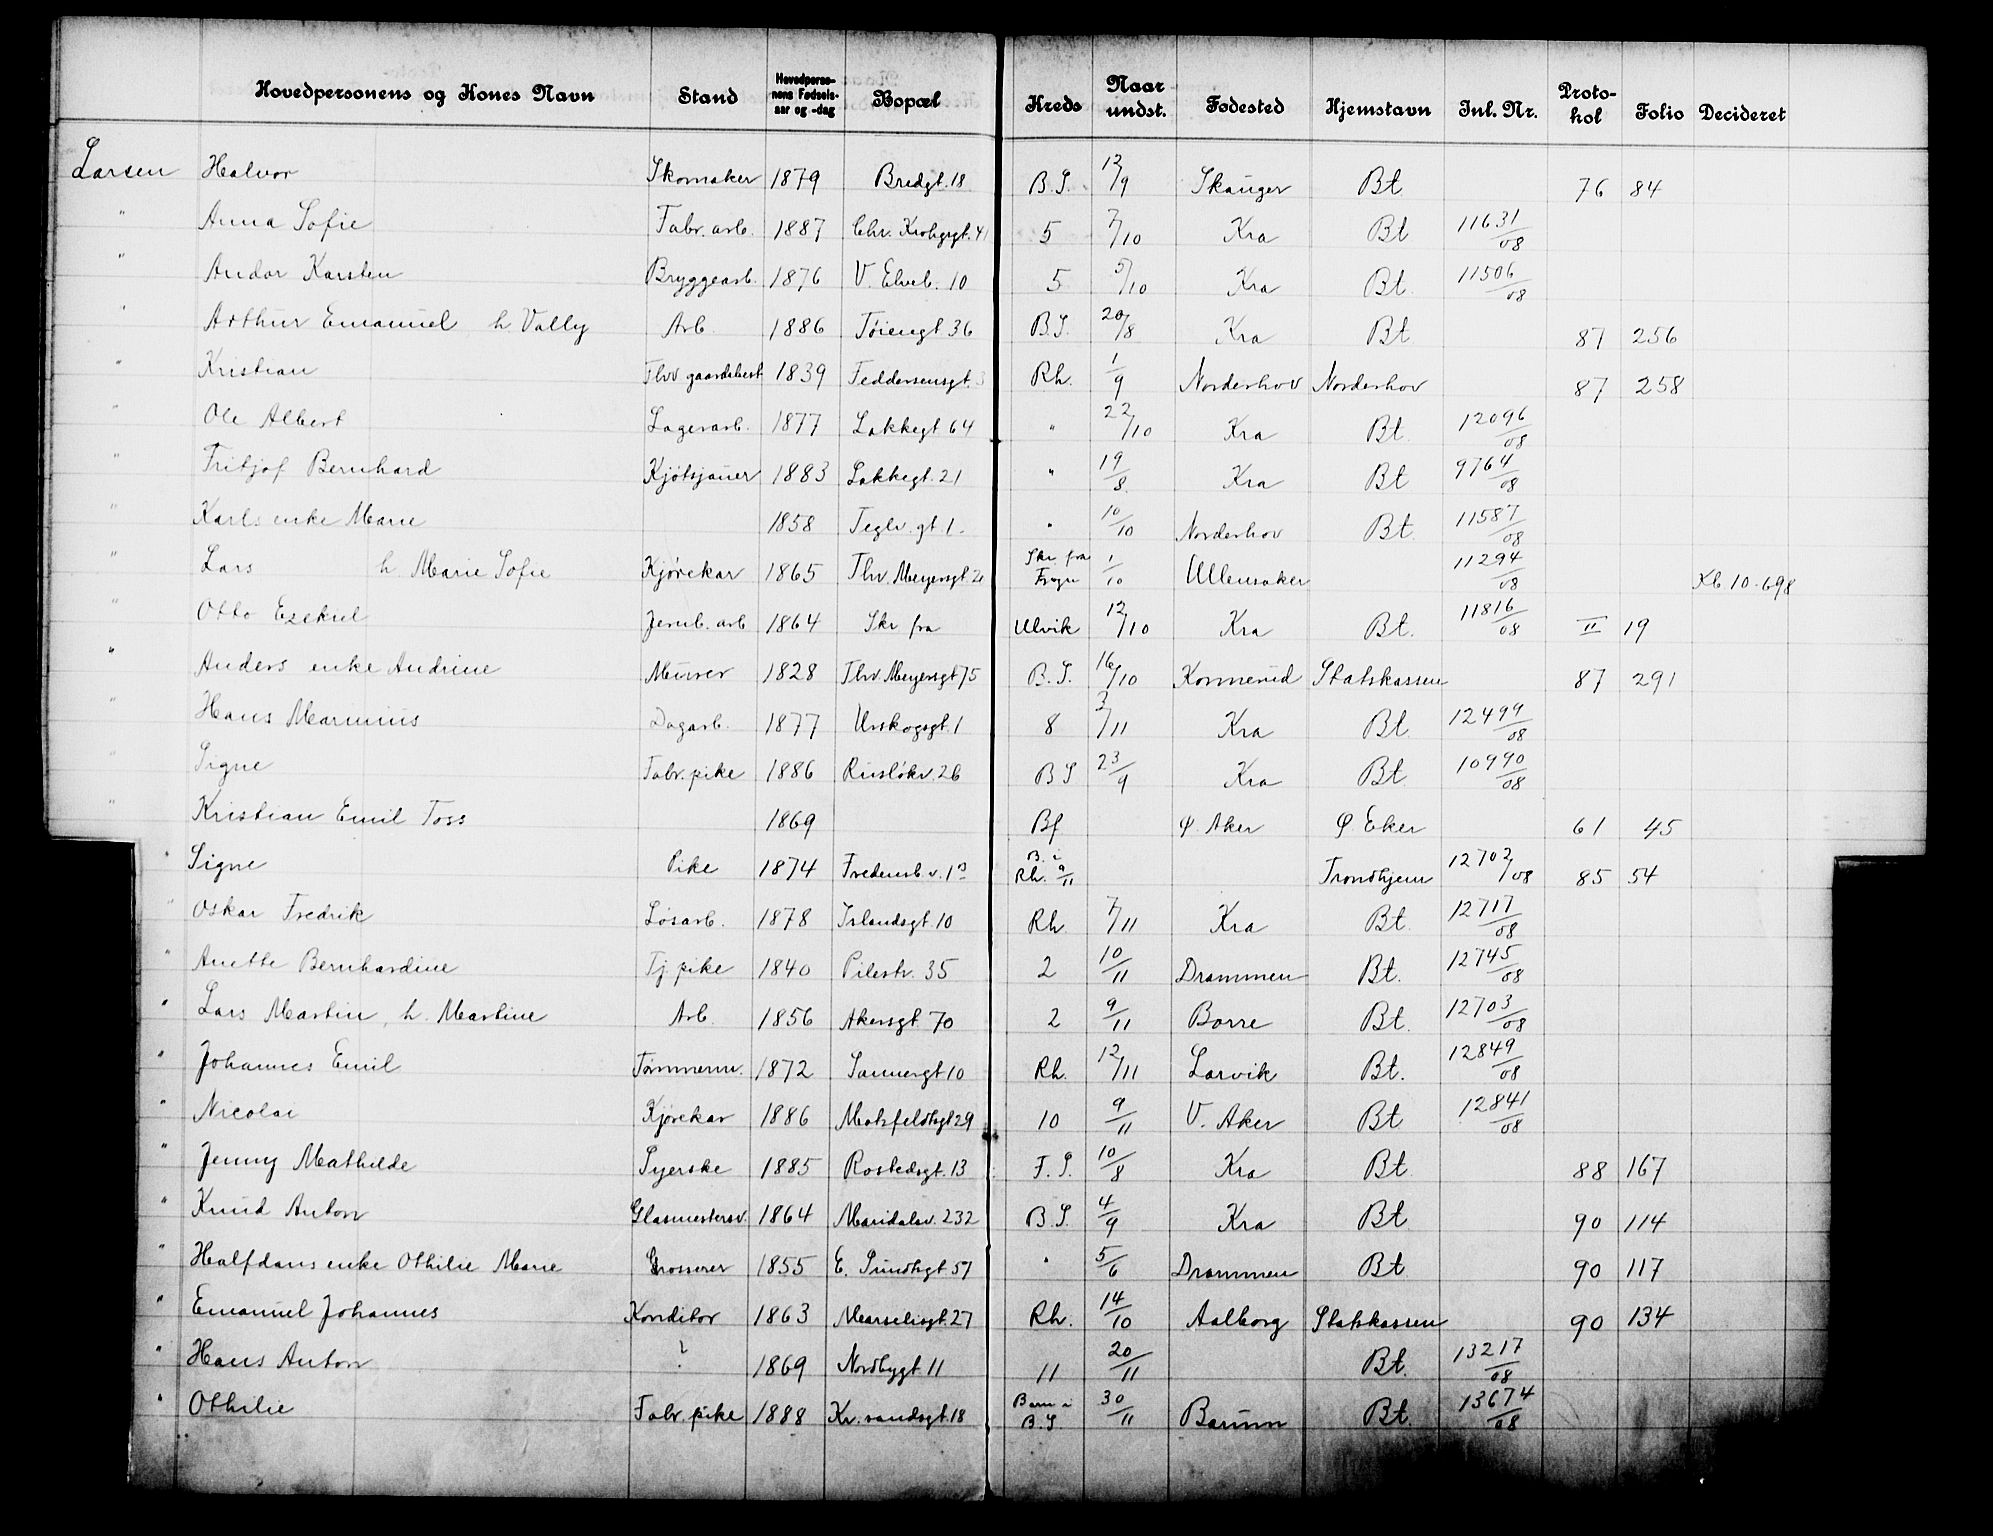 Hovedpersonens og Kones Navn Stand Hovedperso-nens Fødsels-aar og -dag Bopæl Kreds Naar undst. Fødested Hjemstavn Inl. Nr. Proto-kol Folio Decideret
Larsen Halvor Skomaker 1879 Bredgt. 18 B.S. 12/9 Skauger Bt 76 84
" Anna Sofie Fabr. arb. 1887 Chr. Krohgsgt. 41 5 7/10 Kra Bt 11631/08
" Andor Karsten Bryggearb. 1876 V. Elveb. 10 5 5/10 Kra Bt. 11506/08
" Arthur Emanuel h. Vally Arb. 1886 Tøiengt 36 B.S. 20/8 Kra Bt. 87 256
" Kristian Fhv gaardsbest 1839 Teddersensgt. 3 Rh. 1/9 Norderhov Norderhov 87 258
" Ole Albert Lagerarb. 1877 Lakkegt 64 " 22/10 Kra Bt. 12096/08
" Fritjof Bernhard Kjøtsjauer 1883 Lakkegt. 21 " 19/8 Kra Bt 9764/08
Karls enke Marie 1858 Teglv. gt 1 " 10/10 Norderhov Bt. 11587/08
" Lars h. Marie Sofie Kjørekar 1865 Thv. Meyersgt. 2 Skr fra Frogn 1/10 Ullensaker 11294/08 Kb 10-698
" Otto Ezekiel Jernb. arb 1864 Skr fra Ulvik 12/10 Kra Bt. 11816/08 II 19
" Anders enke Andrine Murer 1828 Thv. Meyersgt 75 B.S. 16/10 Kommerud Statskassen 87 291
" Hans Marinius Dagarb. 1877 Urskogsgt. 1 8 3/11 Kra Bt. 12499/08
" Signe Fabr. pike 1886 Rusløkv. 26 B S 23/9 Kra Bt. 10990/08
" Kristian Emil Toss 1869 Bf Ø. Aker Ø Eker 61 45
" Signe Pike 1874 Fredensb. v. 1 B. i Rh. 9/11 Trondhjem 12702/08 85 54
" Oskar Fredrik Løsarb. 1878 Islandsgt. 10 Rh. 7/11 Kra Bt. 12717/08
" Anette Bernhardine Tj. pike 1840 Pilestr. 35 2 10/11 Drammen Bt. 12745/08
" Lars Martin, h. Martine Arb. 1856 Akersgt. 70 2 9/11 Borre Bt. 12703/08
" Johannes Emil Tømmerm. 1872 Sannergt 10 Rh. 12/11 Larvik Bt. 12849/08
" Nicolai Kjørekar 1886 Motzfeldtsgt 29 10 9/11 V. Aker Bt 12841/08
" Jenny Mathilde Syerske 1885 Rostedsgt. 13 F. S. 10/8 Kra Bt. 88 167
" Knud Anton Glasmestersv. 1864 Maridalsv. 232 B.S. 4/9 Kra Bt. 90 114
" Halfdans enke Othilie Marie Grosserer 1855 E. Sundtsgt. 51 " 5/6 Drammen Bt 90 117
" Emanuel Johannes Konditor 1863 Marselisgt. 27 Rh. 14/10 Aalborg Statskassen 90 134
" Hans Anton ? 1869 Nordbygt 11 11 20/11 Bt. 13217/08
" Othilie Fabr. pike 1888 Kr. sandsgt. 18 Barn i B.S. 30/11 Bærum Bt. 13674/08